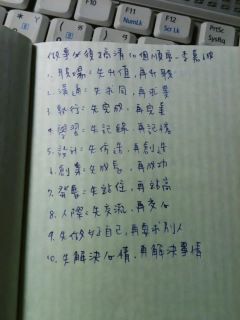 F11
NumLk
F12
Scr Lk
PrtSc
SysRq
做事必須搞清10個順序-李嘉誠
1. 職場：先升值，再升職
2. 溝通：先求同，再求異
3. 執行：先完成，再完美
4. 學習：先記錄，再記憶
5. 設計：先仿造，再創造
6. 創業：先成長，再成功
7. 發展：先站住，再站高
8. 人際：先交流，再交心
9. 先做好自己，再要求別人
10. 先解決心情，再解決事情